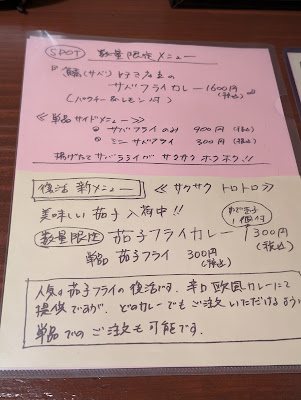 SPOT 数量限定メニュー
鯖(サバ)とトマト応立の
サバフライカレー 1600円(税込)
(パクチー&レモン付)
≪単品サイドメニュー≫
サバフライのみ 900円(税込)
ミニサバフライ 300円(税込)
揚げたてサバフライがサクサクホクホク!!
復活 新メニュー ≪サクサクトロトロ≫
美味しい茄子入荷中!!
1個付
数量限定 茄子フライカレー 1300円(税込)
単品 茄子フライ 300円(税込)
人気の茄子フライの復活です。辛口欧風カレーにて
提供ですが、どのカレーでもご注文いただけるように
単品でのご注文も可能です。